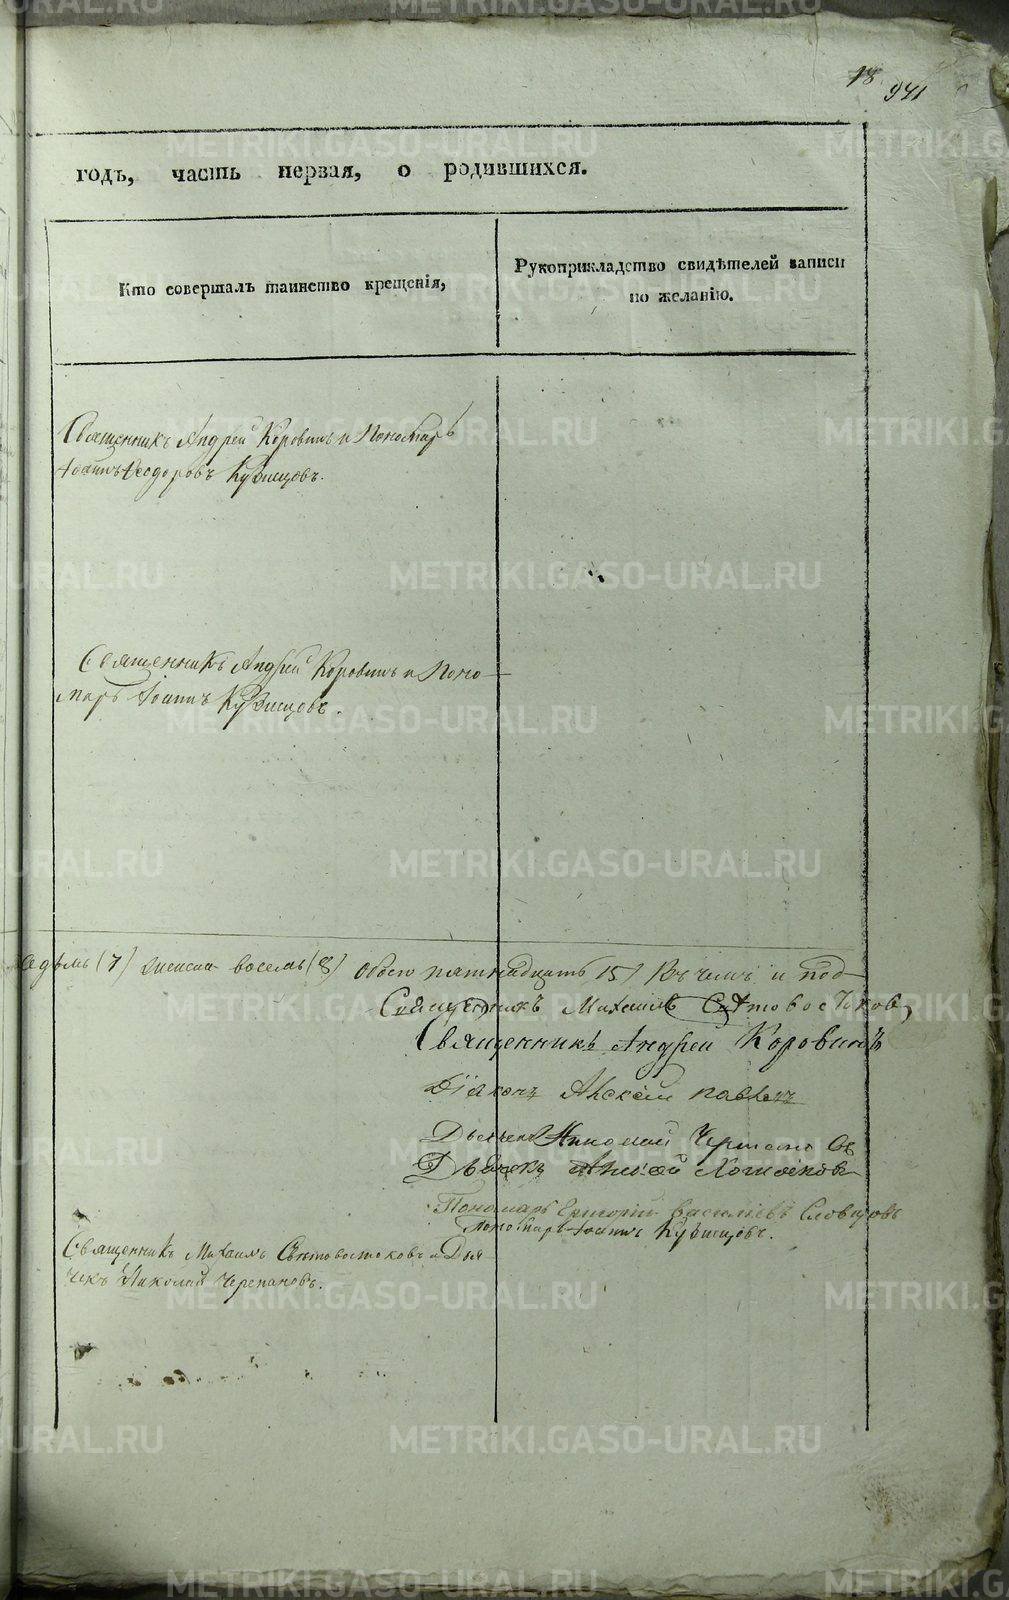 18
941
годъ, часть первая, о родившихся.
Кто совершалъ таинство крещенія,
Рукоприкладство свидѣтелей записи
по желанію.
Священникъ Андрей Коровинъ и Пономарь
Іоаннъ Ѳеодоровъ Кузнецовъ.
Священникъ Андрей Коровинъ и Поно-
марь Іоаннъ Кузнецовъ.
седьмь (7) женска восемь (8) обоего пятнадцать 15) Въ чемъ и под
Священникъ Михаилъ Свѣтовостоковъ,
Священникъ Андрей Коровинъ
Діаконъ Алексѣй
Дьячекъ Николай Черепановъ
Дьячекъ
Пономарь Григорій Васильевъ Словцовъ
Пономарь Іоаннъ Кузнецовъ.
Священникъ Михаилъ Свѣтовостоковъ и Дья
чекъ Николай Черепановъ.
METRIKI.GASO-URAL.RU